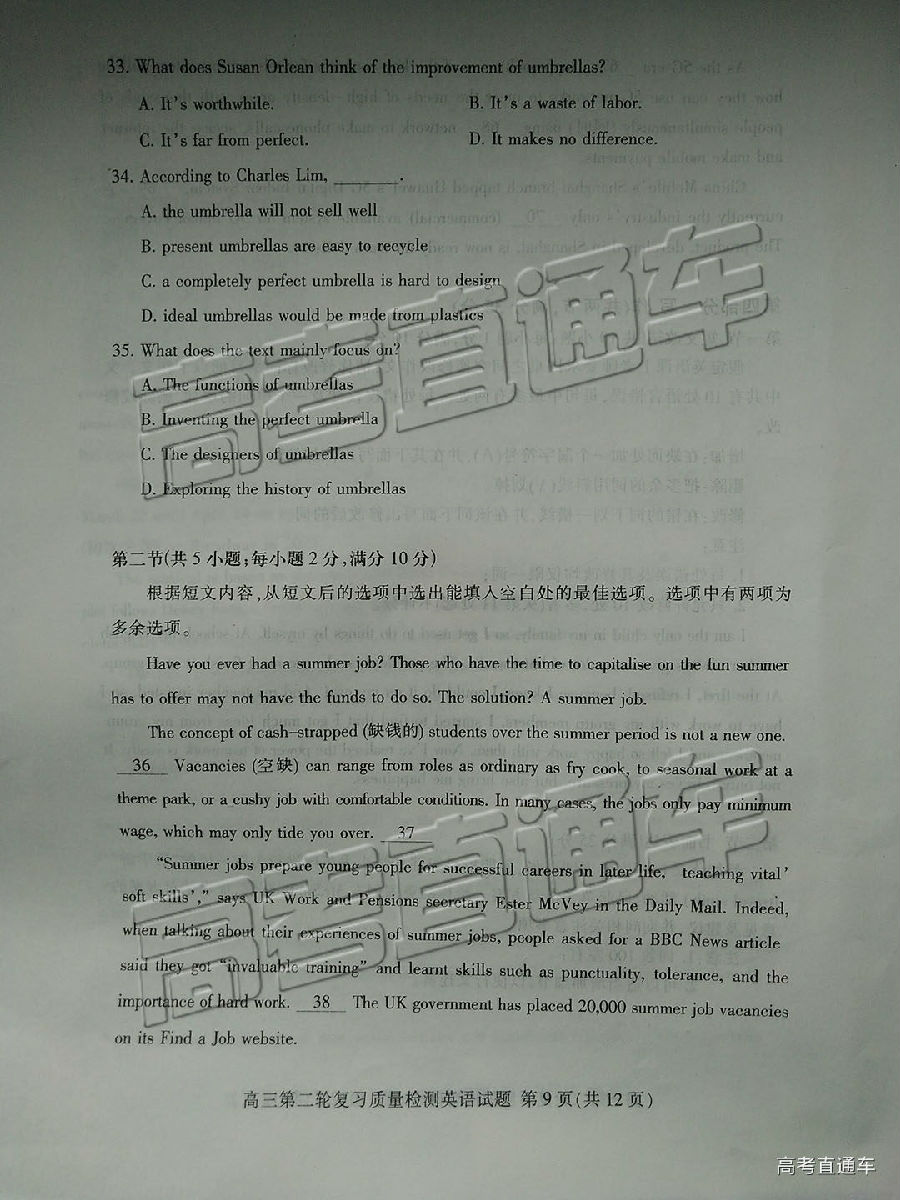 33. What does Susan Orlean think of the improvement of umbrellas?
A. It's worthwhile.
B. It's a waste of labor.
C. It's far from perfect.
D. It makes no difference.
34. According to Charles Lim, ______.
A. the umbrella will not sell well
B. present umbrellas are easy to recycle
C. a completely perfect umbrella is hard to design
D. ideal umbrellas would be made from plastics
35. What does the text mainly focus on?
A. The functions of umbrellas
B. Inventing the perfect umbrella
C. The designers of umbrellas
D. Exploring the history of umbrellas
高考直通车
第二节(共 5 小题;每小题 2 分,满分 10 分)
根据短文内容,从短文后的选项中选出能填入空白处的最佳选项。选项中有两项为
多余选项。
Have you ever had a summer job? Those who have the time to capitalise on the fun summer
has to offer may not have the funds to do so. The solution? A summer job.
The concept of cash-strapped (缺钱的) students over the summer period is not a new one.
36 Vacancies (空缺) can range from roles as ordinary as fry cook, to seasonal work at a
theme park, or a cushy job with comfortable conditions. In many cases, the jobs only pay minimum
wage, which may only tide you over. 37
"Summer jobs prepare young people for successful careers in later life, teaching vital'
soft skills'," says UK Work and Pensions secretary Ester McVey in the Daily Mail. Indeed,
when talking about their experiences of summer jobs, people asked for a BBC News article
said they got "invaluable training" and learnt skills such as punctuality, tolerance, and the
importance of hard work. 38 The UK government has placed 20,000 summer job vacancies
on its Find a Job website.
高考直通车
高三第二轮复习质量检测英语试题 第 9 页(共 12 页)
高考直通车